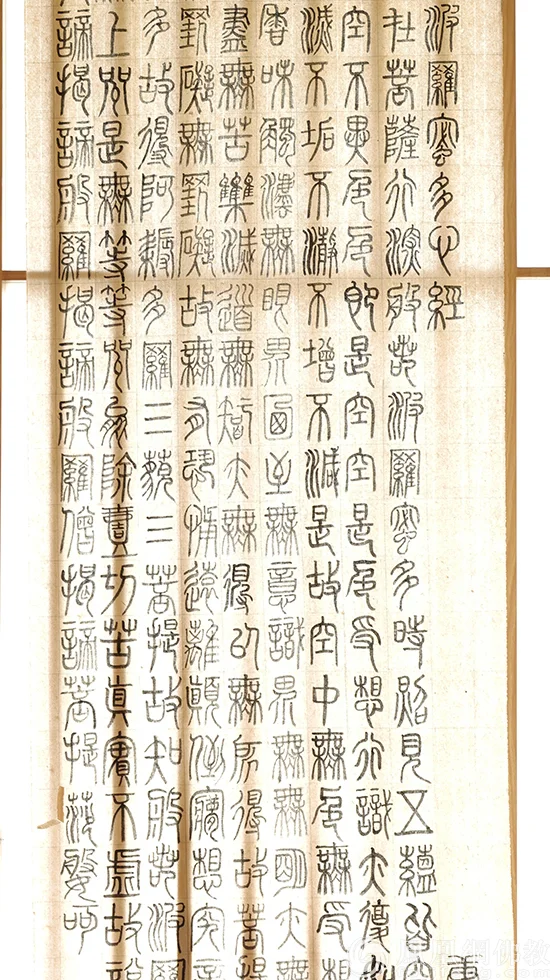 波羅蜜多心經
在菩薩行深般若波羅蜜多時照見五蘊皆空
空不異色色即是空空是色受想行識亦復
滅不垢不淨不增不減是故空中無色無受想
香味觸法無眼界乃至無意識界無無明亦無
盡無苦集滅道無智亦無得以無所得故菩提
罣礙無罣礙故無有恐怖遠離顛倒夢想究竟
多故得阿耨多羅三藐三菩提故知般若波羅
上咒是無等等咒能除壹切苦真實不虛故說
諦揭諦般羅揭諦般羅僧揭諦菩提薩婆呵